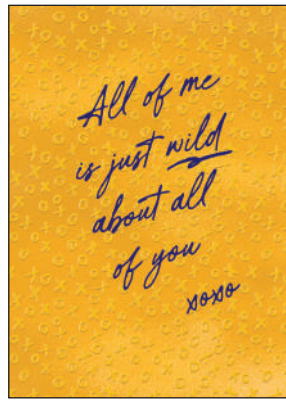 All of me
is just wild
about all
of you
xoxo